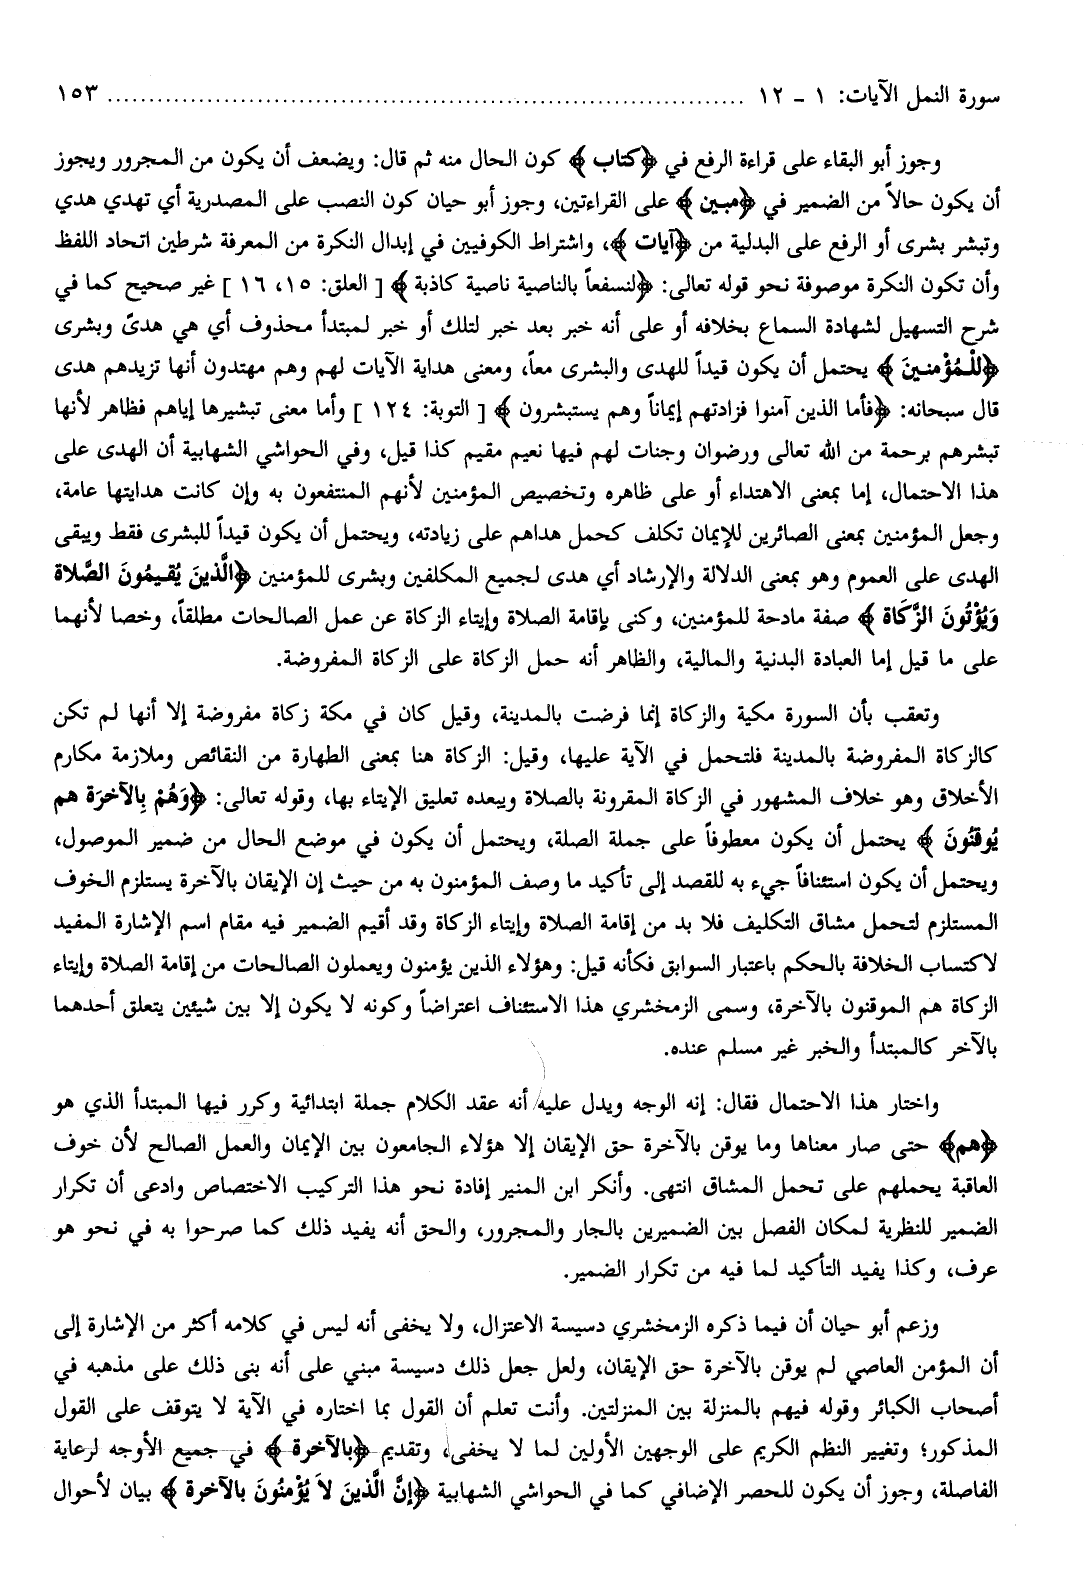 سورة النمل الآيات: ١ - ١٢ ........................................................................... ١٥٣
وجوز أبو البقاء على قراءة الرفع في ﴿كتاب﴾ كون الحال منه ثم قال: ويضعف أن يكون من المجرور ويجوز
أن يكون حالاً من الضمير في ﴿مبين﴾ على القراءتين، وجوز أبو حيان كون النصب على المصدرية أي تهدي هدي
وتبشر بشرى أو الرفع على البدلية من ﴿آيات﴾، واشتراط الكوفيين في إبدال النكرة من المعرفة شرطين اتحاد اللفظ
وأن تكون النكرة موصوفة نحو قوله تعالى: ﴿لنسفعاً بالناصية ناصية كاذبة﴾ [ العلق: ١٥، ١٦ ] غير صحيح كما في
شرح التسهيل لشهادة السماع بخلافه أو على أنه خبر بعد خبر لتلك أو خبر لمبتدأ محذوف أي هي هدىً وبشرى
﴿لِلْمُؤْمنِينَ﴾ يحتمل أن يكون قيداً للهدى والبشرى معاً، ومعنى هداية الآيات لهم وهم مهتدون أنها تزيدهم هدى
قال سبحانه: ﴿فأما الذين آمنوا فزادتهم إيماناً وهم يستبشرون﴾ [ التوبة: ١٢٤ ] وأما معنى تبشيرها إياهم فظاهر لأنها
تبشرهم برحمة من الله تعالى ورضوان وجنات لهم فيها نعيم مقيم كذا قيل، وفي الحواشي الشهابية أن الهدى على
هذا الاحتمال، إما بمعنى الاهتداء أو على ظاهره وتخصيص المؤمنين لأنهم المنتفعون به وإن كانت هدايتها عامة،
وجعل المؤمنين بمعنى الصائرين للإيمان تكلف كحمل هداهم على زيادته، ويحتمل أن يكون قيداً للبشرى فقط ويبقى
الهدى على العموم وهو بمعنى الدلالة والإرشاد أي هدى لجميع المكلفين وبشرى للمؤمنين ﴿الَّذينَ يُقيمُونَ الصَّلاة
وَيُؤْتُونَ الزَّكَاة﴾ صفة مادحة للمؤمنين، وكنى بإقامة الصلاة وإيتاء الزكاة عن عمل الصالحات مطلقاً، وخصا لأنهما
على ما قيل إما العبادة البدنية والمالية، والظاهر أنه حمل الزكاة على الزكاة المفروضة.
وتعقب بأن السورة مكية والزكاة إنما فرضت بالمدينة، وقيل كان في مكة زكاة مفروضة إلا أنها لم تكن
كالزكاة المفروضة بالمدينة فلتحمل في الآية عليها، وقيل: الزكاة هنا بمعنى الطهارة من النقائص وملازمة مكارم
الأخلاق وهو خلاف المشهور في الزكاة المقرونة بالصلاة ويبعده تعليق الإيتاء بها، وقوله تعالى: ﴿وَهُمْ بِالآخرَة هم
يُوقنُونَ﴾ يحتمل أن يكون معطوفاً على جملة الصلة، ويحتمل أن يكون في موضع الحال من ضمير الموصول،
ويحتمل أن يكون استئنافاً جيء به للقصد إلى تأكيد ما وصف المؤمنون به من حيث إن الإيقان بالآخرة يستلزم الخوف
المستلزم لتحمل مشاق التكليف فلا بد من إقامة الصلاة وإيتاء الزكاة وقد أقيم الضمير فيه مقام اسم الإشارة المفيد
لاكتساب الخلافة بالحكم باعتبار السوابق فكأنه قيل: وهؤلاء الذين يؤمنون ويعملون الصالحات من إقامة الصلاة وإيتاء
الزكاة هم الموقنون بالآخرة، وسمى الزمخشري هذا الاستئناف اعتراضاً وكونه لا يكون إلا بين شيئين يتعلق أحدهما
بالآخر كالمبتدأ والخبر غير مسلم عنده.
واختار هذا الاحتمال فقال: إنه الوجه ويدل عليه أنه عقد الكلام جملة ابتدائية وكرر فيها المبتدأ الذي هو
﴿هم﴾ حتى صار معناها وما يوقن بالآخرة حق الإيقان إلا هؤلاء الجامعون بين الإيمان والعمل الصالح لأن خوف
العاقبة يحملهم على تحمل المشاق انتهى. وأنكر ابن المنير إفادة نحو هذا التركيب الاختصاص وادعى أن تكرار
الضمير للنظرية لمكان الفصل بين الضميرين بالجار والمجرور، والحق أنه يفيد ذلك كما صرحوا به في نحو هو
عرف، وكذا يفيد التأكيد لما فيه من تكرار الضمير.
وزعم أبو حيان أن فيما ذكره الزمخشري دسيسة الاعتزال، ولا يخفى أنه ليس في كلامه أكثر من الإشارة إلى
أن المؤمن العاصي لم يوقن بالآخرة حق الإيقان، ولعل جعل ذلك دسيسة مبني على أنه بنى ذلك على مذهبه في
أصحاب الكبائر وقوله فيهم بالمنزلة بين المنزلتين. وأنت تعلم أن القول بما اختاره في الآية لا يتوقف على القول
المذكور؛ وتغيير النظم الكريم على الوجهين الأولين لما لا يخفى، وتقديم ﴿بالآخرة﴾ في جميع الأوجه لرعاية
الفاصلة، وجوز أن يكون للحصر الإضافي كما في الحواشي الشهابية ﴿إنَّ الَّذينَ لاَ يُؤْمنُونَ بالآخرة﴾ بيان لأحوال